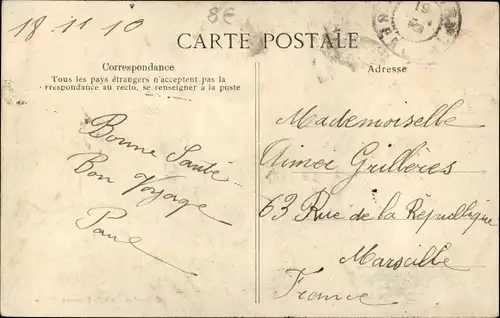 18 11 10
8E
CARTE POSTALE
Correspondance
Tous les pays étrangers n'acceptent pas la
rrespondance au recto, se renseigner à la poste
Adresse
Bonne Santé
Bon Voyage
Paul
Mademoiselle
Aimée Grillères
63 Rue de la République
Marseille
France